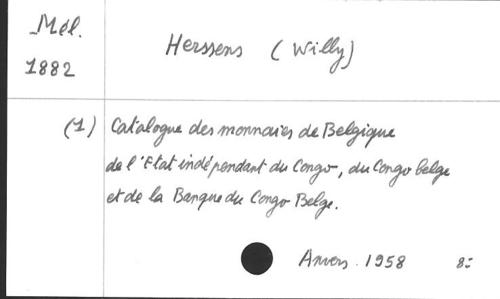 Mél.
1882
Herssens (Willy)
(1) Catalogue des monnaies de Belgique
de l'Etat indépendant du Congo, du Congo belge
et de la Banque du Congo Belge.
Anvers. 1958 8=